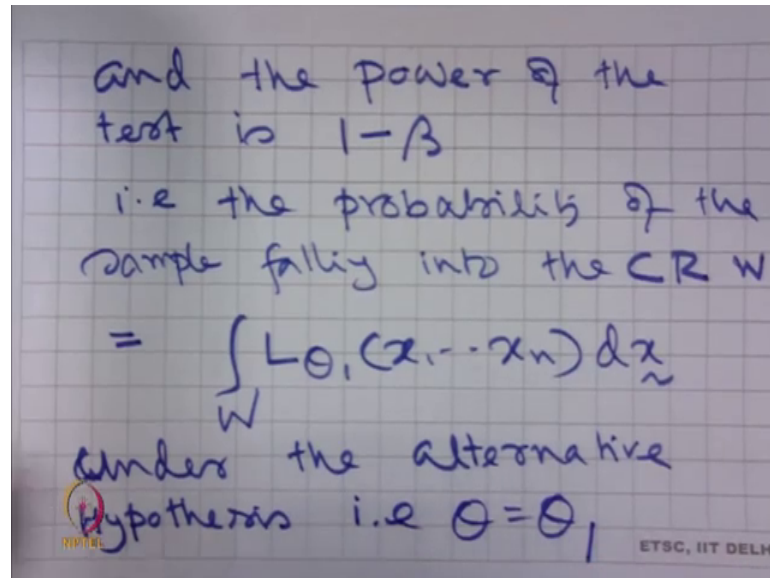 and the power of the
test is 1-β
i.e the probability of the
sample falling into the CR W
= ∫_W L_θ₁ (x₁...xₙ) dx̰
under the alternative
Hypothesis i.e θ = θ₁
NPTEL
ETSC, IIT DELH